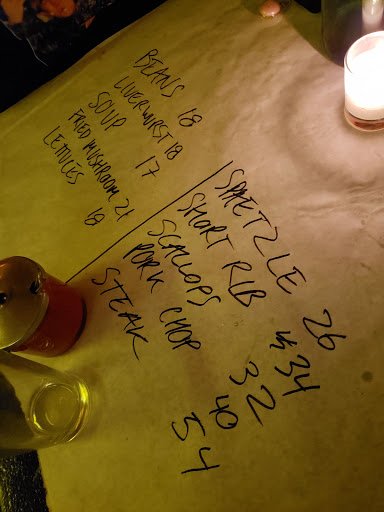 BEANS 18
LIVERWURST 18
SOUP 17
FRIED MUSHROOM 21
LETTUCES 18
SPAETZLE 26
SHORT RIB 34
SCALLOPS 32
PORK CHOP 40
STEAK 54